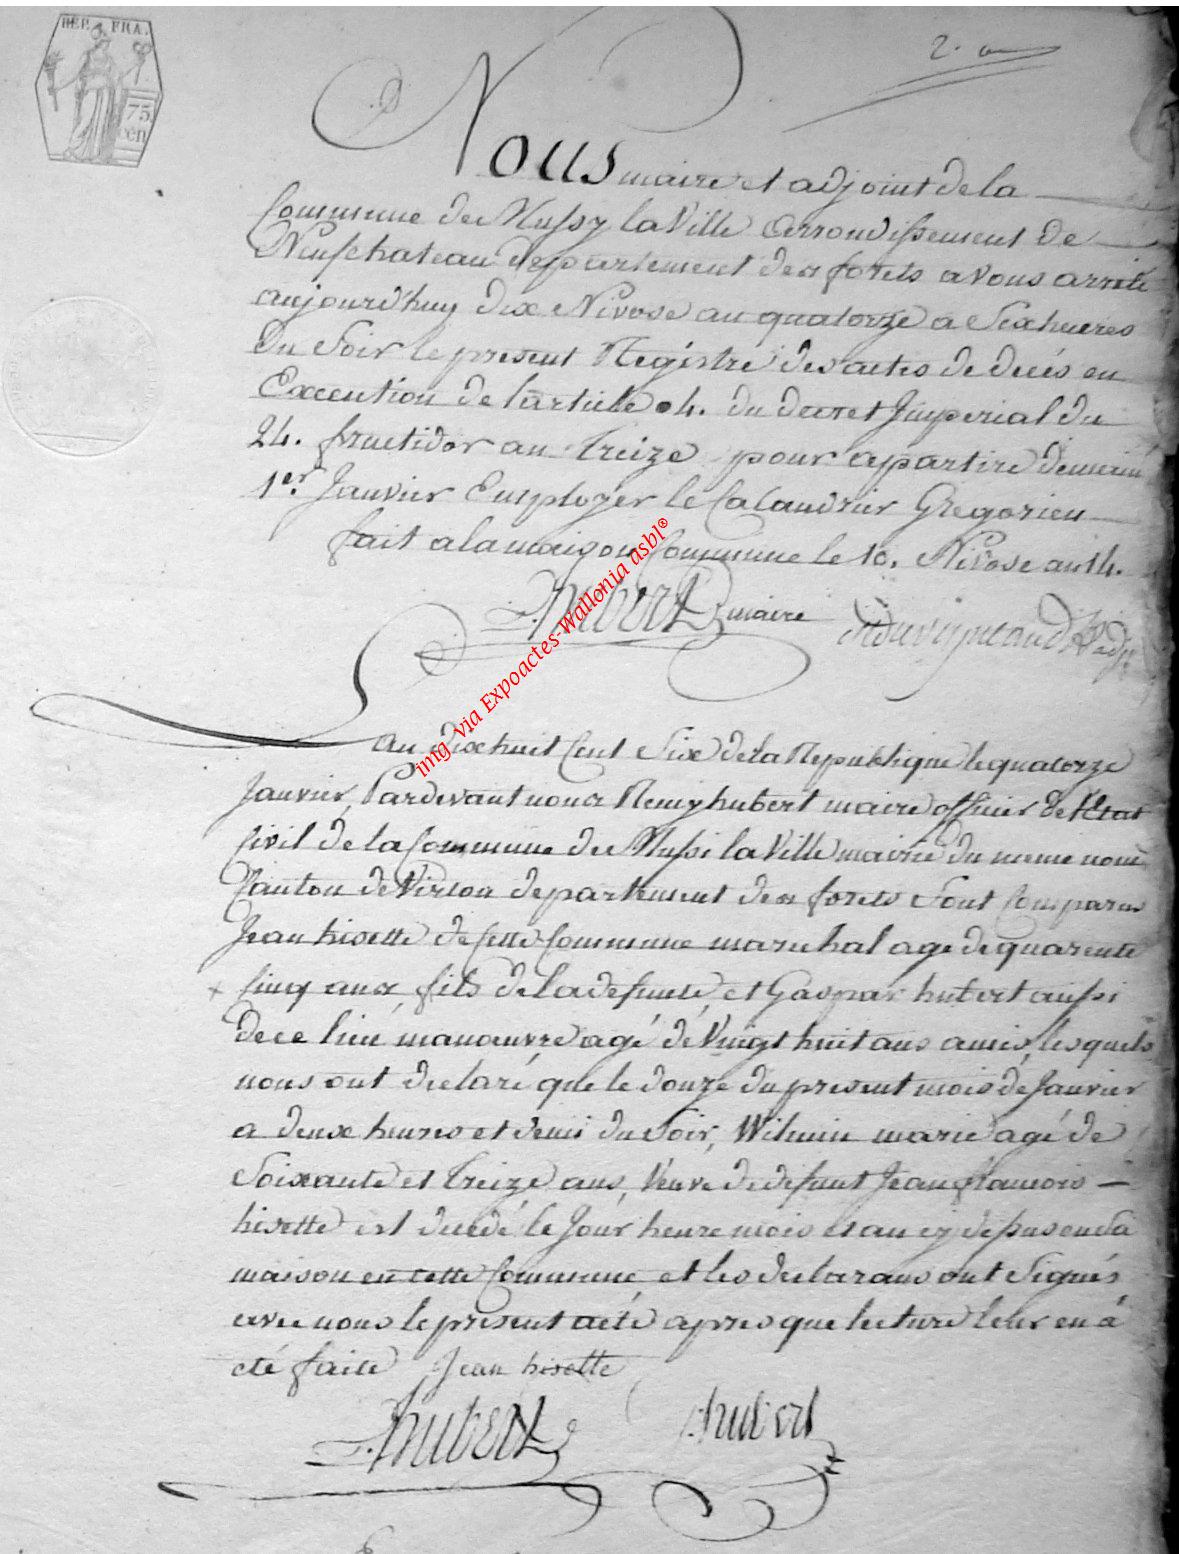 REP. FRA.
75
cen
2.
Nous maire et adjoint de la
Commune de Mussy la Ville arrondissement de
Neufchateau departement des forets avons arreté
aujourd'huy dix Nivose an quatorze a Six heures
du Soir le present Régistre des actes de decés en
Execution de l'article 4. du decret Jmperial du
24. fructidor an treize pour apartire demain
1er. Janvier Employer le Calandrier Gregorien
fait a la maison Commune le 10. Nivose an 14.
Hubert maire
img via Expoactes-Wallonia asbl®
an dix huit Cent Six de la Republique le quatorze
Janvier, Pardevant nous Remy hubert maire officier de l'Etat
Civil de la Commune de Mussi la Ville mairie du meme nom
Canton de Virton departement des forets Sont Comparus
Jean hisette de Cette Commune marechal age de quarente
Cinq ans, fils de la defunte, et Gaspar hubert aussi
de ce lieu manœuvre agé dé Vingt huit ans amis, lesquels
nous ont declaré que le douze du present mois de Janvier
a deux heures et demi du Soir, Wilmin marie agé de
Soixante et treize ans, Veuve de defunt Jean françois
hisette est decedé le Jour heure mois et an cy dessus en Sa
maison en cette Commune, et les declarans ont Signés
avec nous le present acté apres que lecture leur en á
eté faite Jean hisette
Hubert hubert